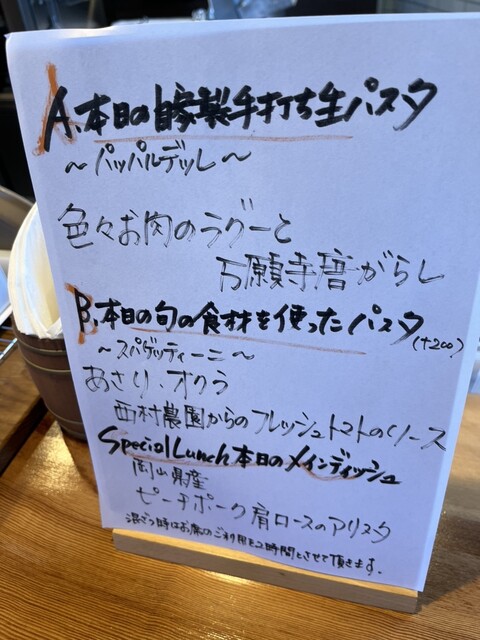 A.本日の自家製手打ち生パスタ
～パッパルデッレ～
色々お肉のラグーと
万願寺唐がらし
B.本日の旬の食材を使ったパスタ
(+200)
～スパゲッティーニ～
あさり、オクラ
西村農園からのフレッシュトマトのソース
Special Lunch 本日のメインディッシュ
岡山県産
ピーチポーク肩ロースのアリスタ
混ざう時はお席のご利用を2時間とさせて頂きます。